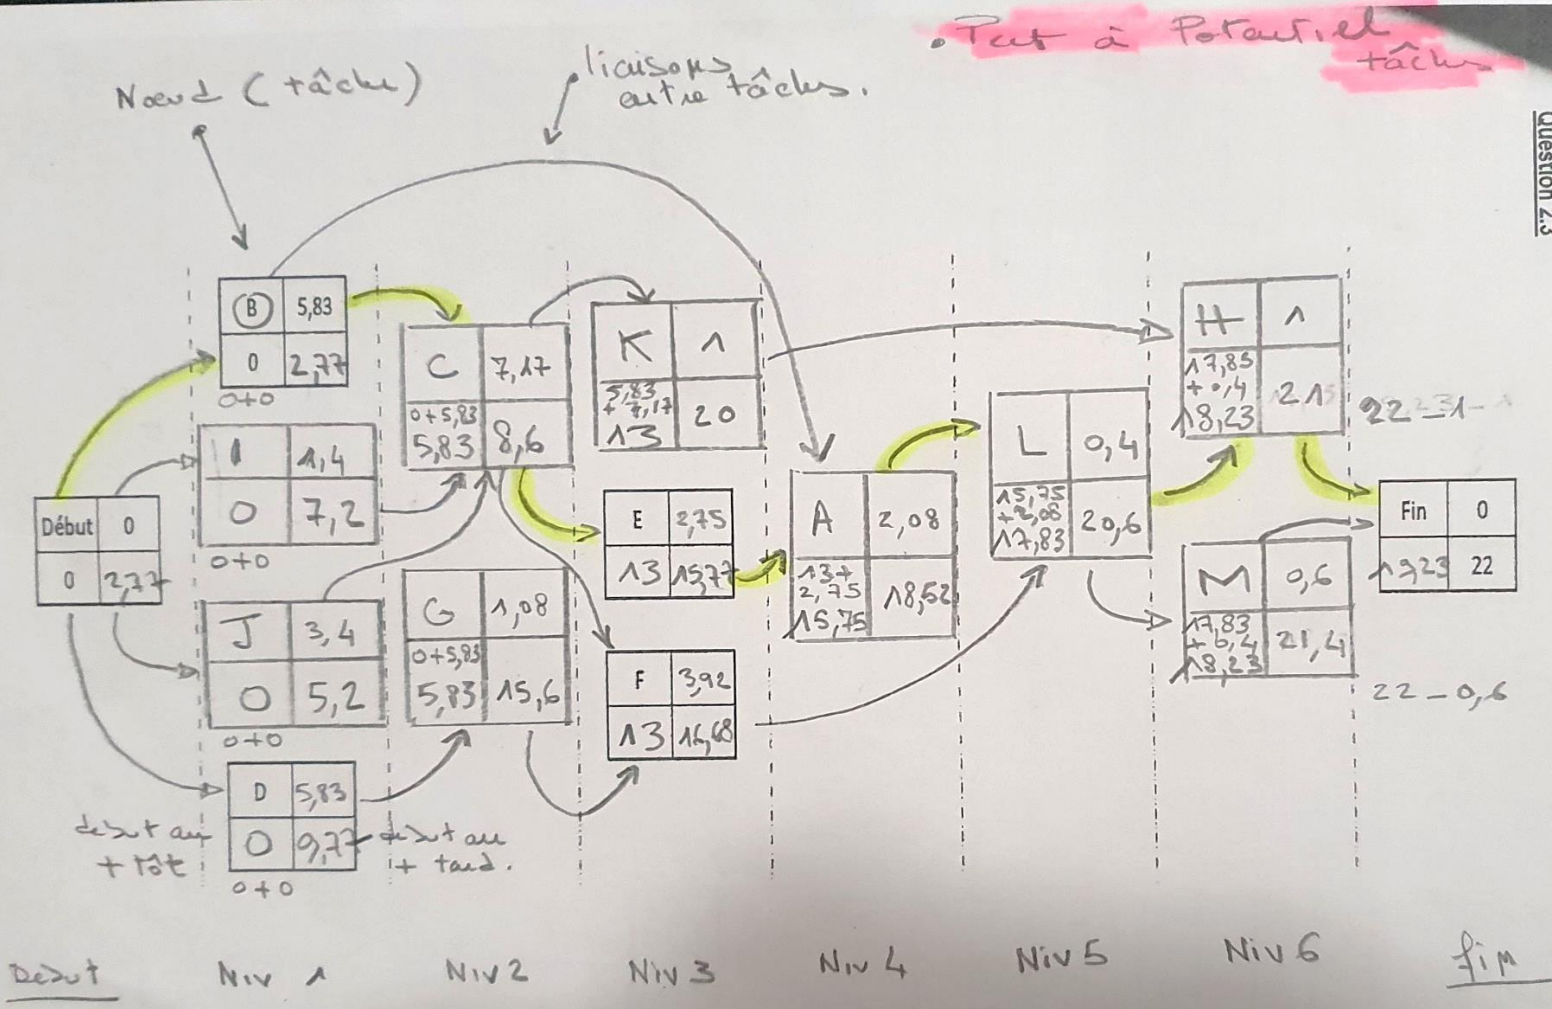 . Pert à Potentiel
tâches
Question 2.3
Nœud (tâche)
liaisons
entre tâches.
B 5,83
0 2,77
0+0
I 1,4
0 7,2
0+0
Début 0
0 2,77
J 3,4
0 5,2
0+0
D 5,83
0 9,77
0+0
début au
+ tôt
début au
+ tard.
C 7,17
0+5,83
5,83 8,6
G 1,08
0+5,83
5,83 15,6
K 1
5,83
+ 7,17
13 20
E 2,75
13 15,77
F 3,92
13 16,68
A 2,08
13+
2,75
15,75 18,52
L 0,4
15,75
+2,08
17,83 20,6
H 1
17,83
+0,4
18,23 21
22-1
M 0,6
17,83
+0,4
18,23 21,4
22-0,6
Fin 0
19,23 22
Début Niv 1 Niv 2 Niv 3 Niv 4 Niv 5 Niv 6 fin